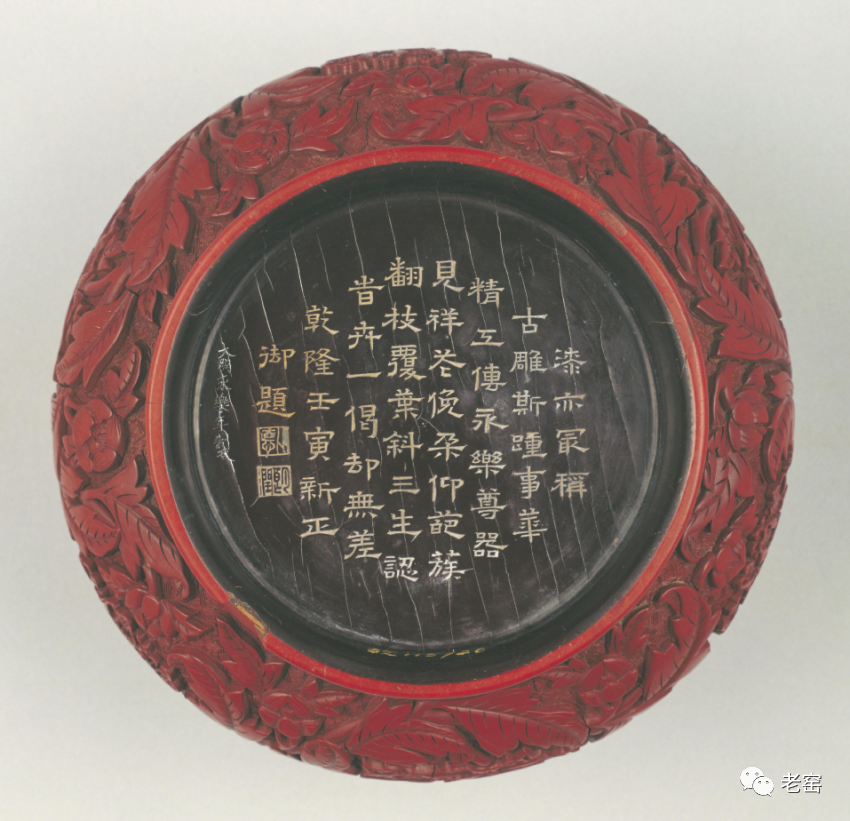 漆亦冣稱
古雕斯踵事華
精工傳永樂尊器
見祥花俛朶仰葩蔟
翻枝覆葉斜三生認
昔卉一偈却無差
乾隆壬寅新正
御題
大明永樂年製
老窑